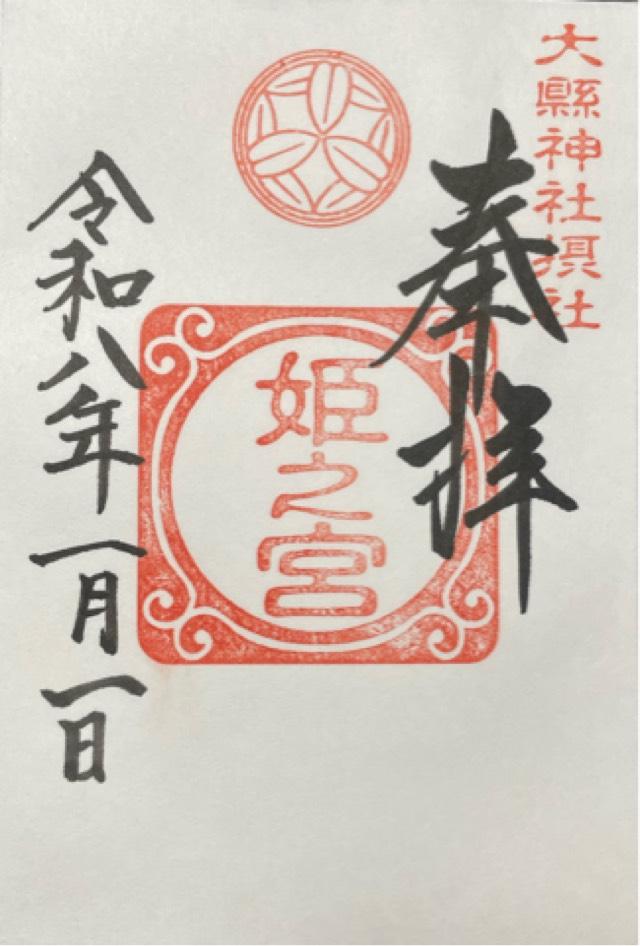 大縣神社摂社
奉拝
姫之宮
令和八年一月一日